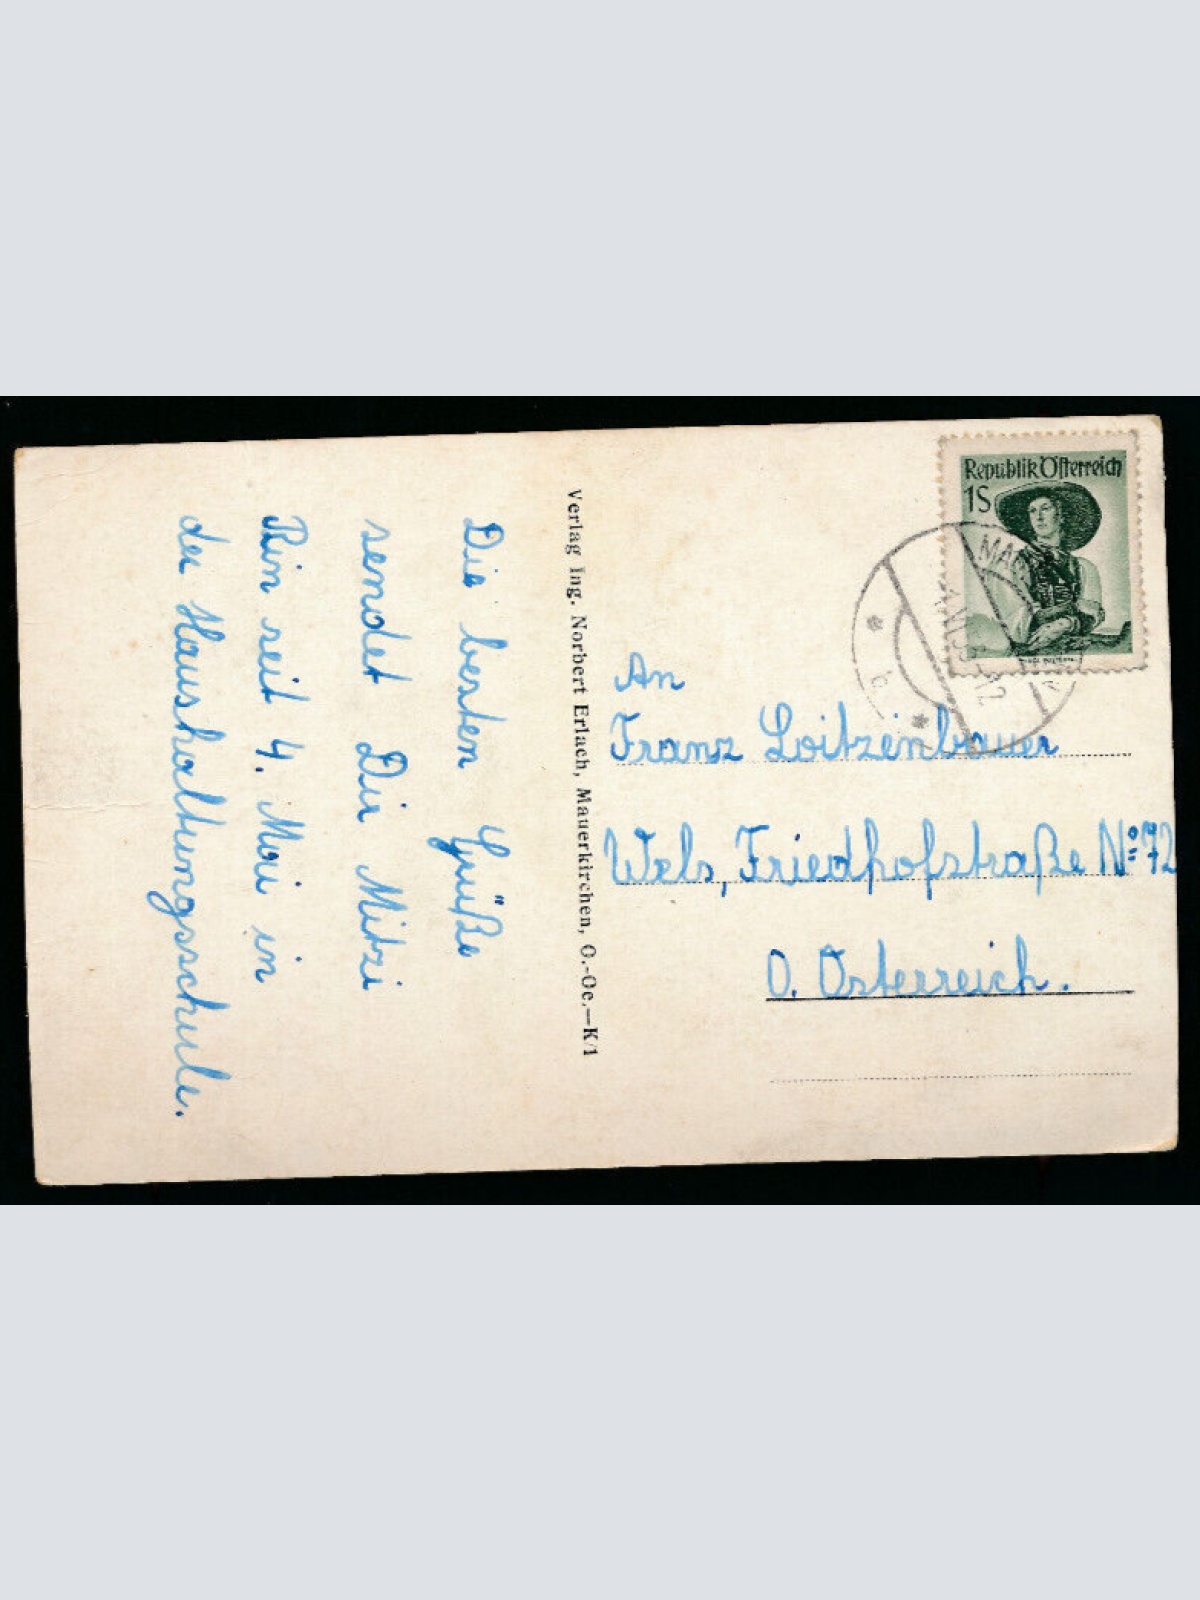 Die besten Grüße
sendet Dir Mitzi
Bin seit 4. Mai in
der Haushaltungsschule.
Verlag Ing. Norbert Erlach, Mauerkirchen, O.-Oe.—K/1
Republik Österreich
1S
An
Franz Loitzenbauer
Wels, Friedhofstraße No: 72
O. Österreich.